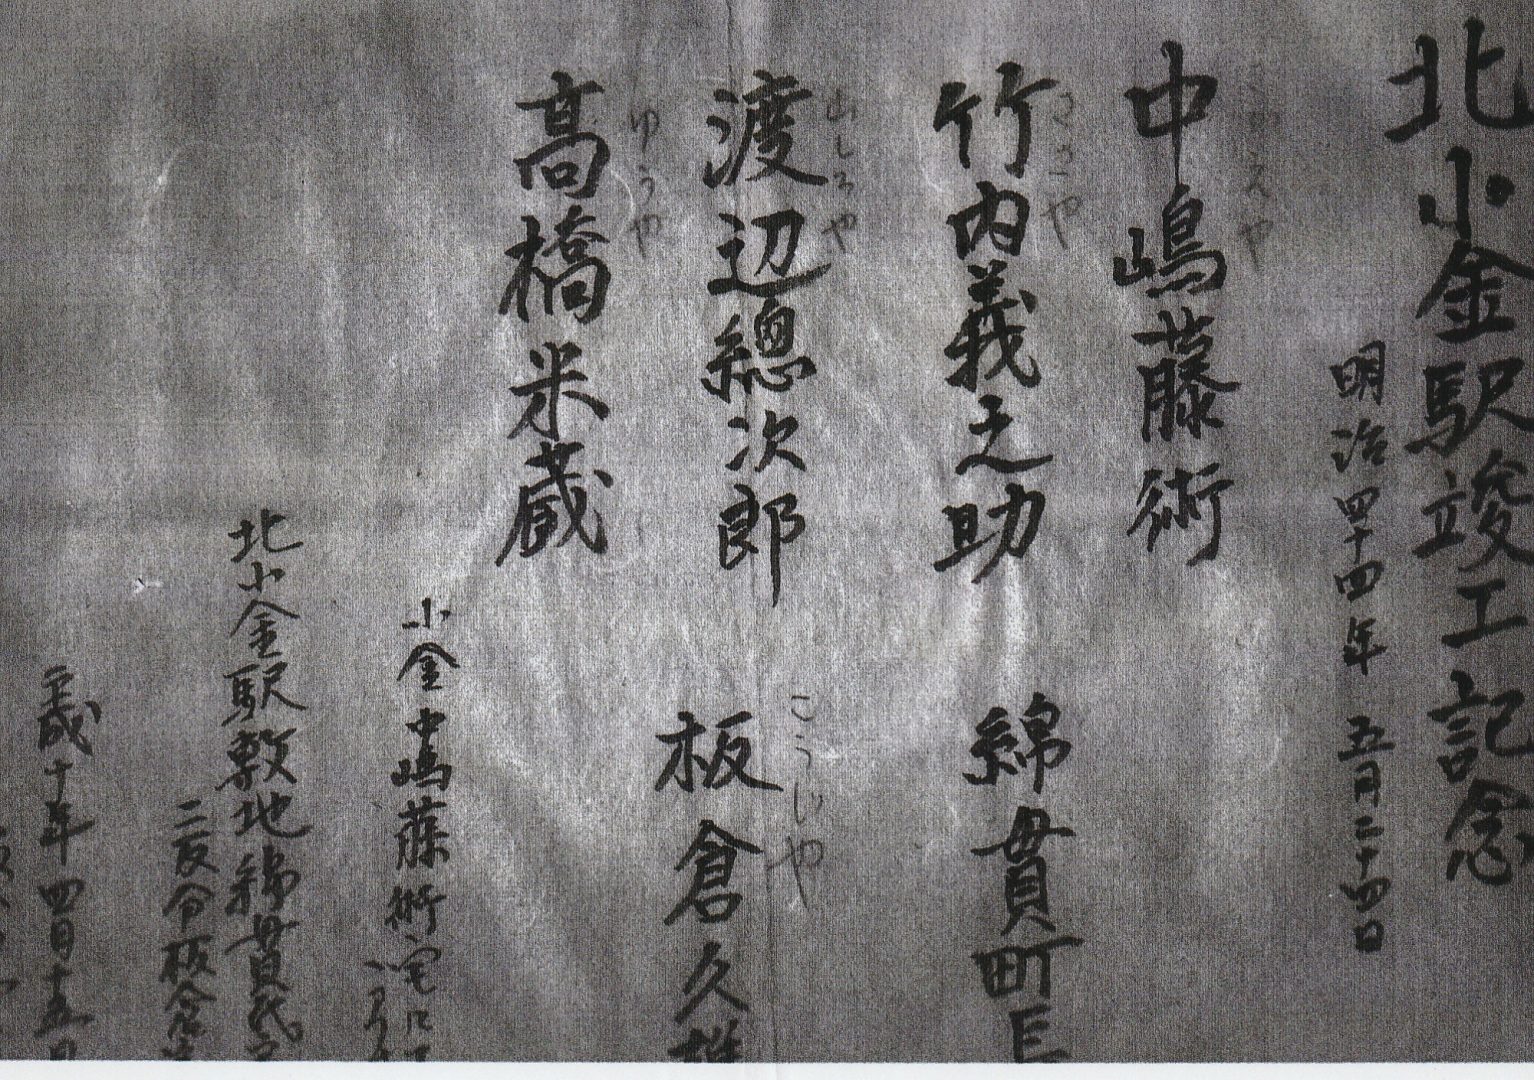 北小金駅竣工記念
明治四十四年 五月二十四日
中嶋藤術
竹内義之助 綿貫町長
山しろや
渡辺總次郎
こうじや
板倉久雄
ゆうや
高橋米蔵
小金中嶋藤術宅に
北小金駅敷地綿貫氏
二反分板倉
歳十年四月十五日